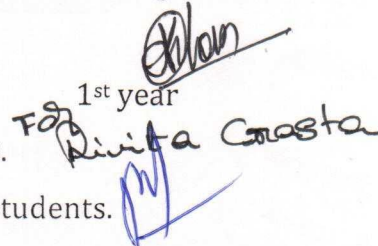 1st year
For
Rivita Crasta
.
tudents.